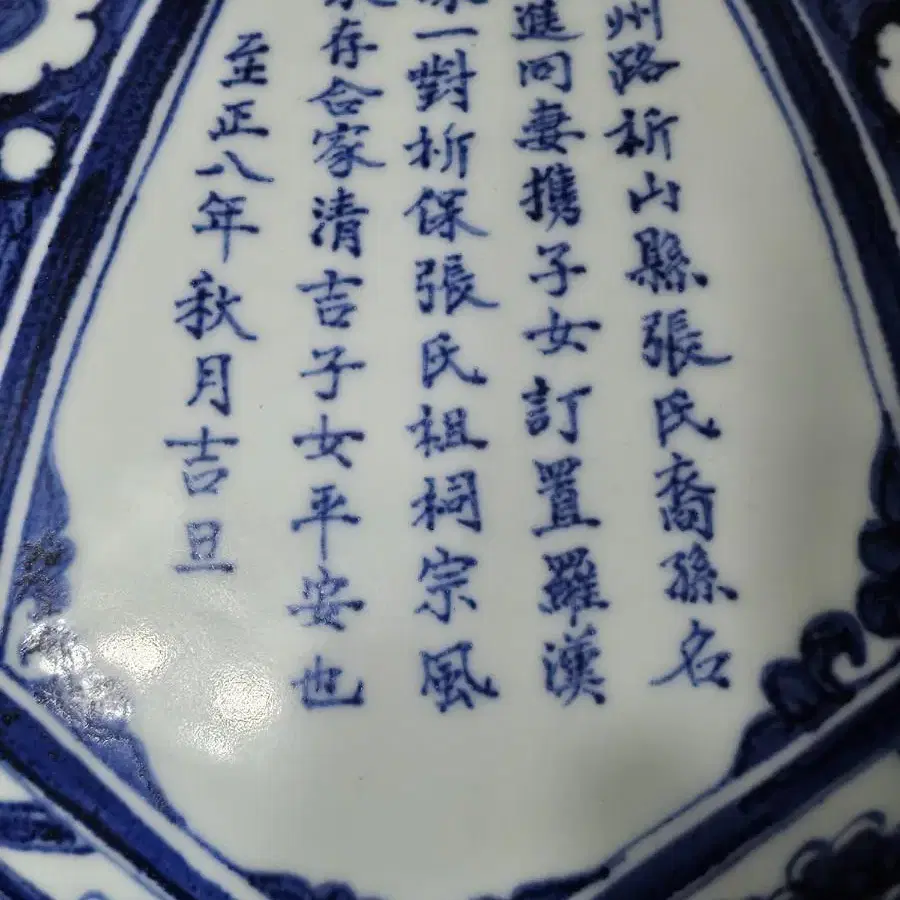 州路祈山縣張氏裔孫名
進同妻携子女訂置羅漢
一對祈保張氏祖祠宗風
存合家清吉子女平安也
至正八年秋月吉旦